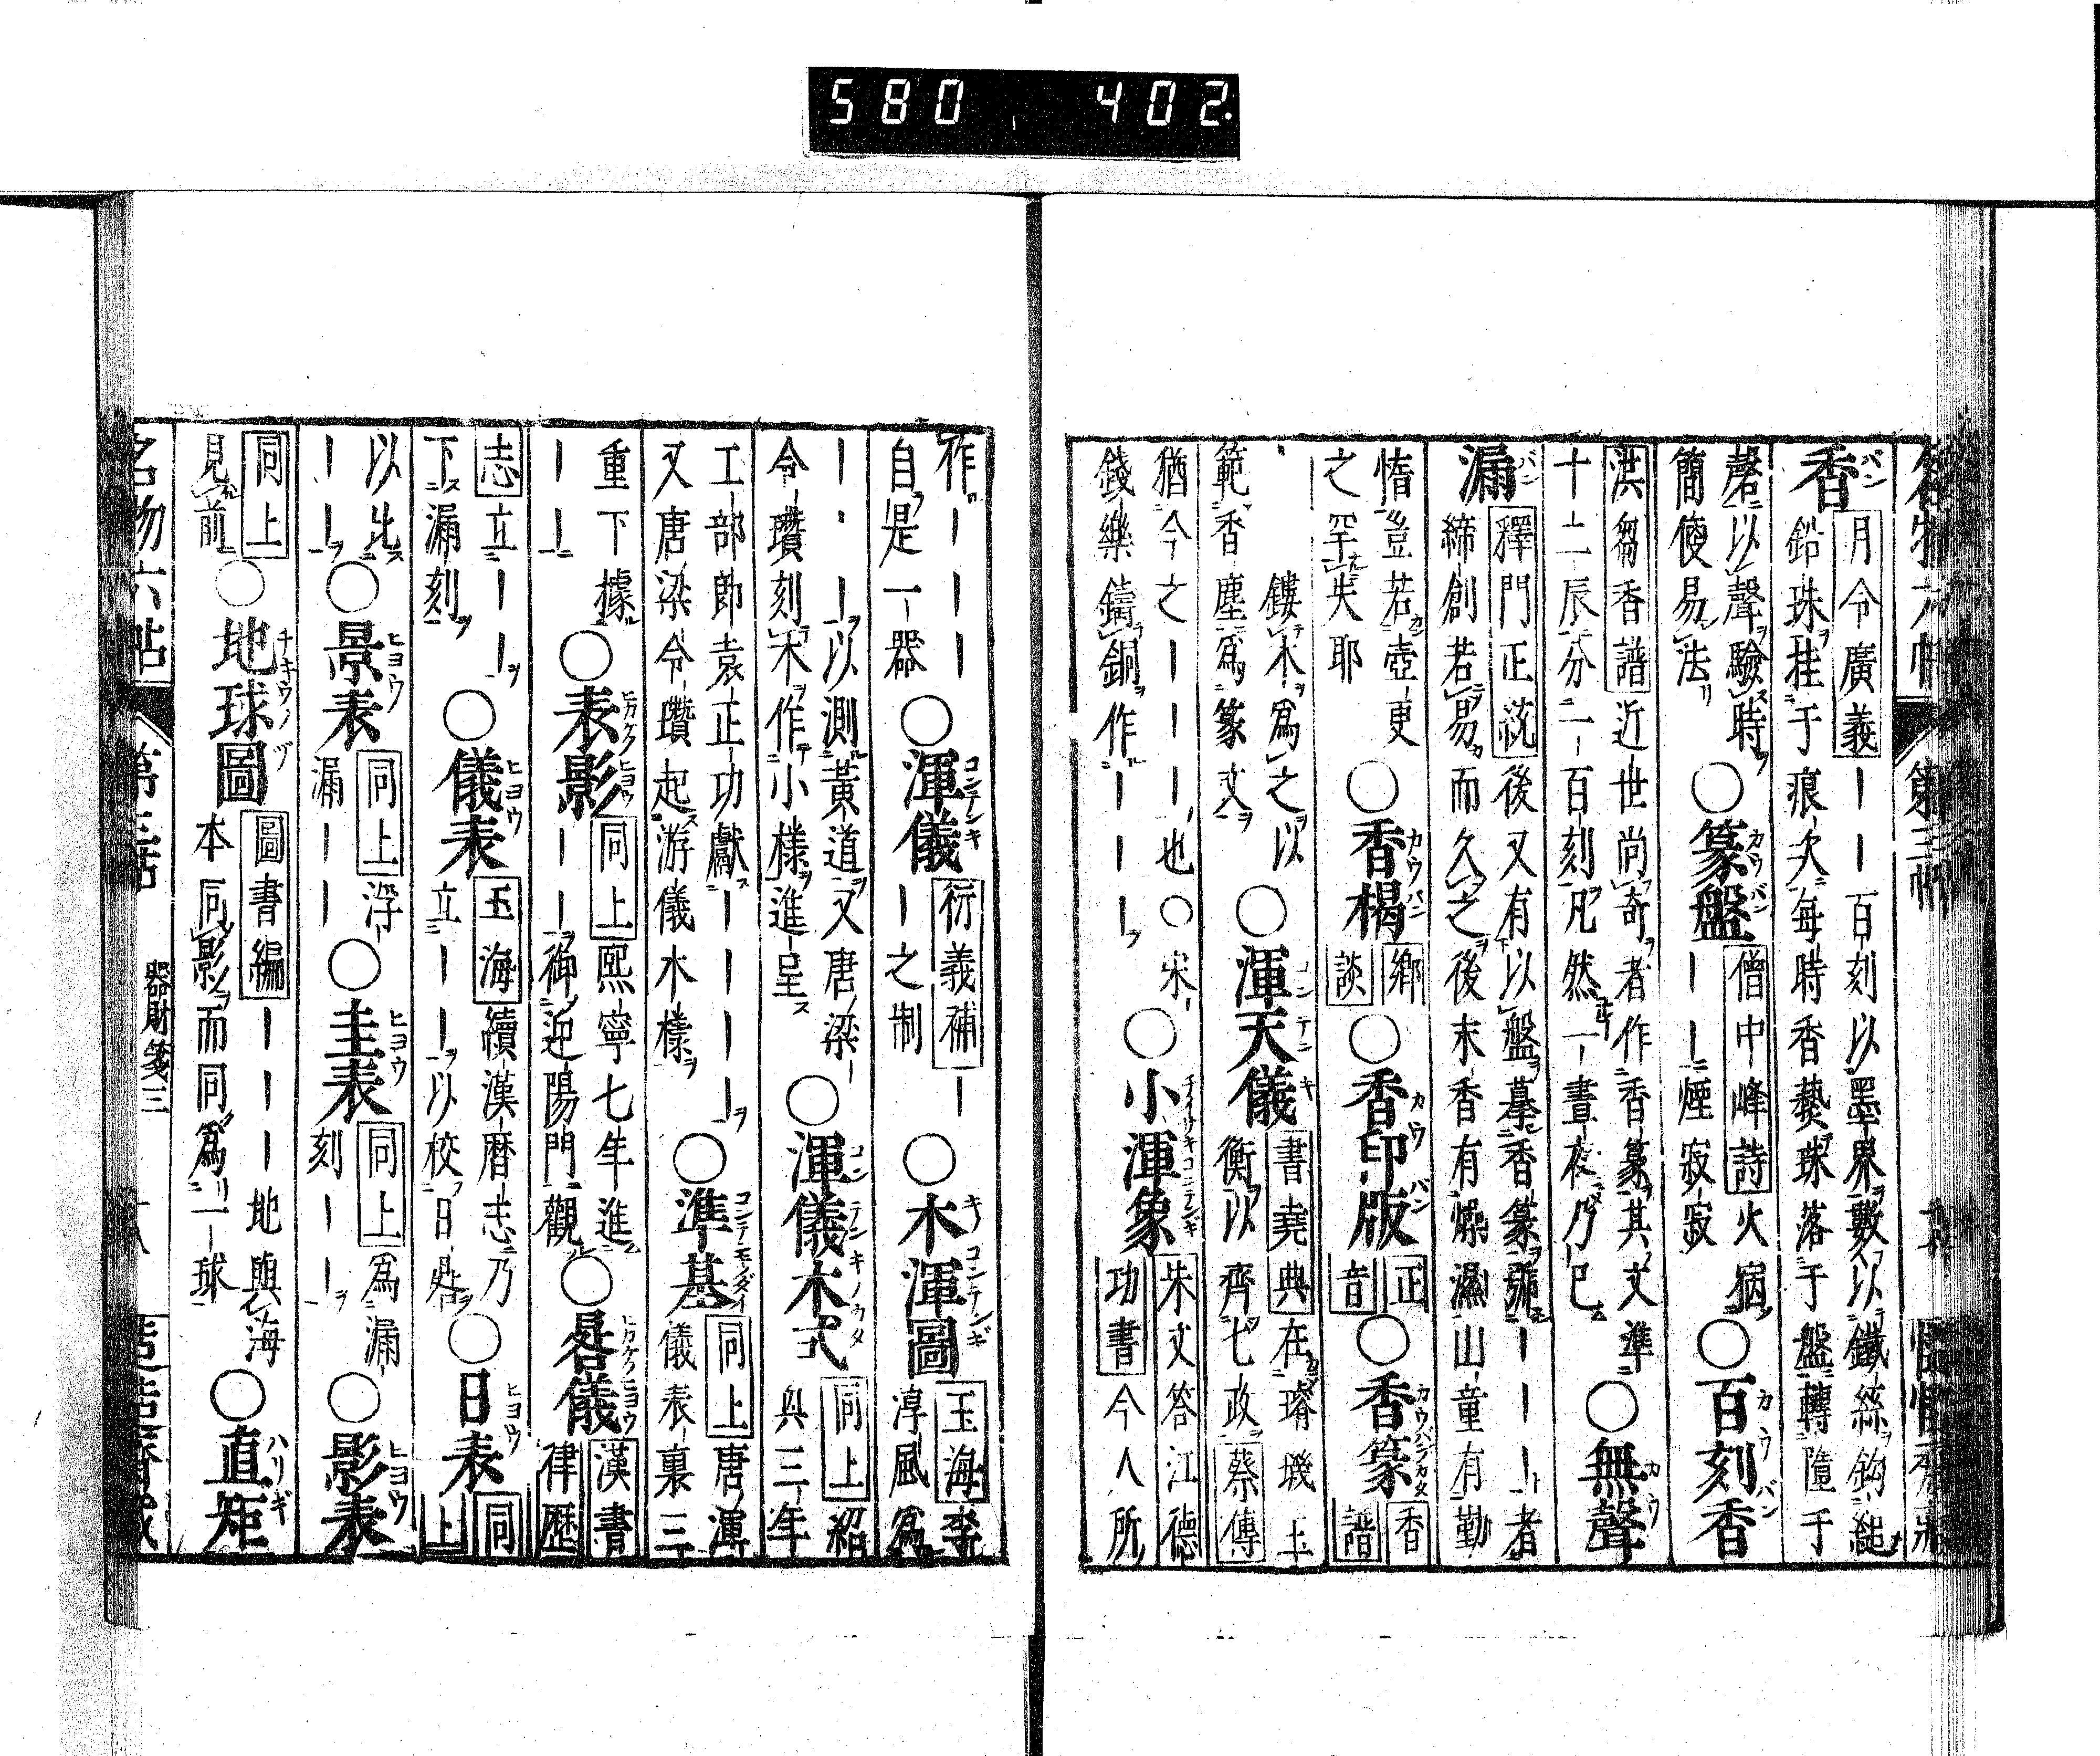 580 402
香 月令廣義 ーー百刻以墨界數以鐵絲鈎縋
鉛珠挂于痕欠每時香爇珠落于盤轉隨于
磬以聲驗時
簡便易法
○篆盤 僧中峰詩 火痴ーー煙寂寂 ○百刻香
洪芻香譜 近世尚奇者作香篆其文準
十二辰分一百刻凡然一晝夜乃已
○無聲
漏 釋門正統 後又有以盤摹香篆號ーーー者
締創若易而久之後末香有燥濕山童有勤
惰豈若壺更
之罕失耶
○香楬 鄉談 ○香印版 正音 ○香篆 香譜
鏤木爲之以
範香塵爲篆文
○渾天儀 書堯典 在璿璣玉
衡以齊七政 蔡傳
猶今之ーーー也○宋
錢樂鑄銅作ーーー
○小渾象 朱文答江德功書 今人所
作ーーー
自是一器
○渾儀 衍義補 ーーー之制 ○木渾圖 玉海 李淳風爲
ーーー以測黃道又唐梁
令瓚刻木作小樣進呈
○渾儀木式 同上 紹興三年
工部郎袁正功獻ーーーー
又唐梁令瓚起游儀木樣
○準基 同上 唐渾儀表裏三
重下據
ーー
○表影 同上 熙寧七年進
ーーー御迎陽門觀
○晷儀 漢書律歷
志 立ーー
下漏刻
○儀表 玉海 續漢曆志乃
立ーーー以校日晷
○日表 同上
以比
ーー
○景表 同上 浮漏ーー ○圭表 同上 爲漏刻ーー ○影表
同上
見前
○地球圖 圖書編 ーーー地與海
本同影而同爲一球
○直矩
名物六帖 第三帖 器財箋三